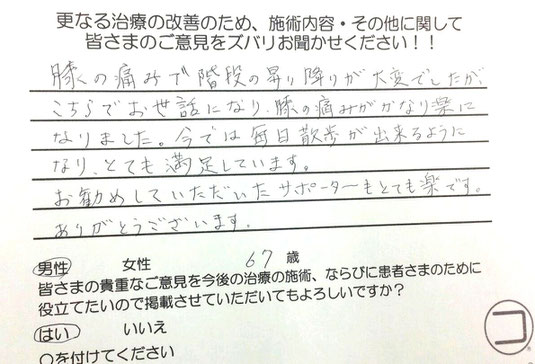 更なる治療の改善のため、施術内容・その他に関して
皆さまのご意見をズバリお聞かせください！！
膝くの痛みで階段の昇り降りが大変でしたが、
こちらでお世話になり、膝の痛みががなり楽に
なりました。今では毎日散歩が出来るように
なり、とても満足しています。
お勧めしていただいたサポーターもとても楽です。
ありがとうございます。
男性 女性 67 歳
皆さまの貴重なご意見を今後の治療の施術、ならびに患者さまのために
役立てたいので掲載させていただいてもよろしいですか？
はい いいえ
○を付けてください
コ